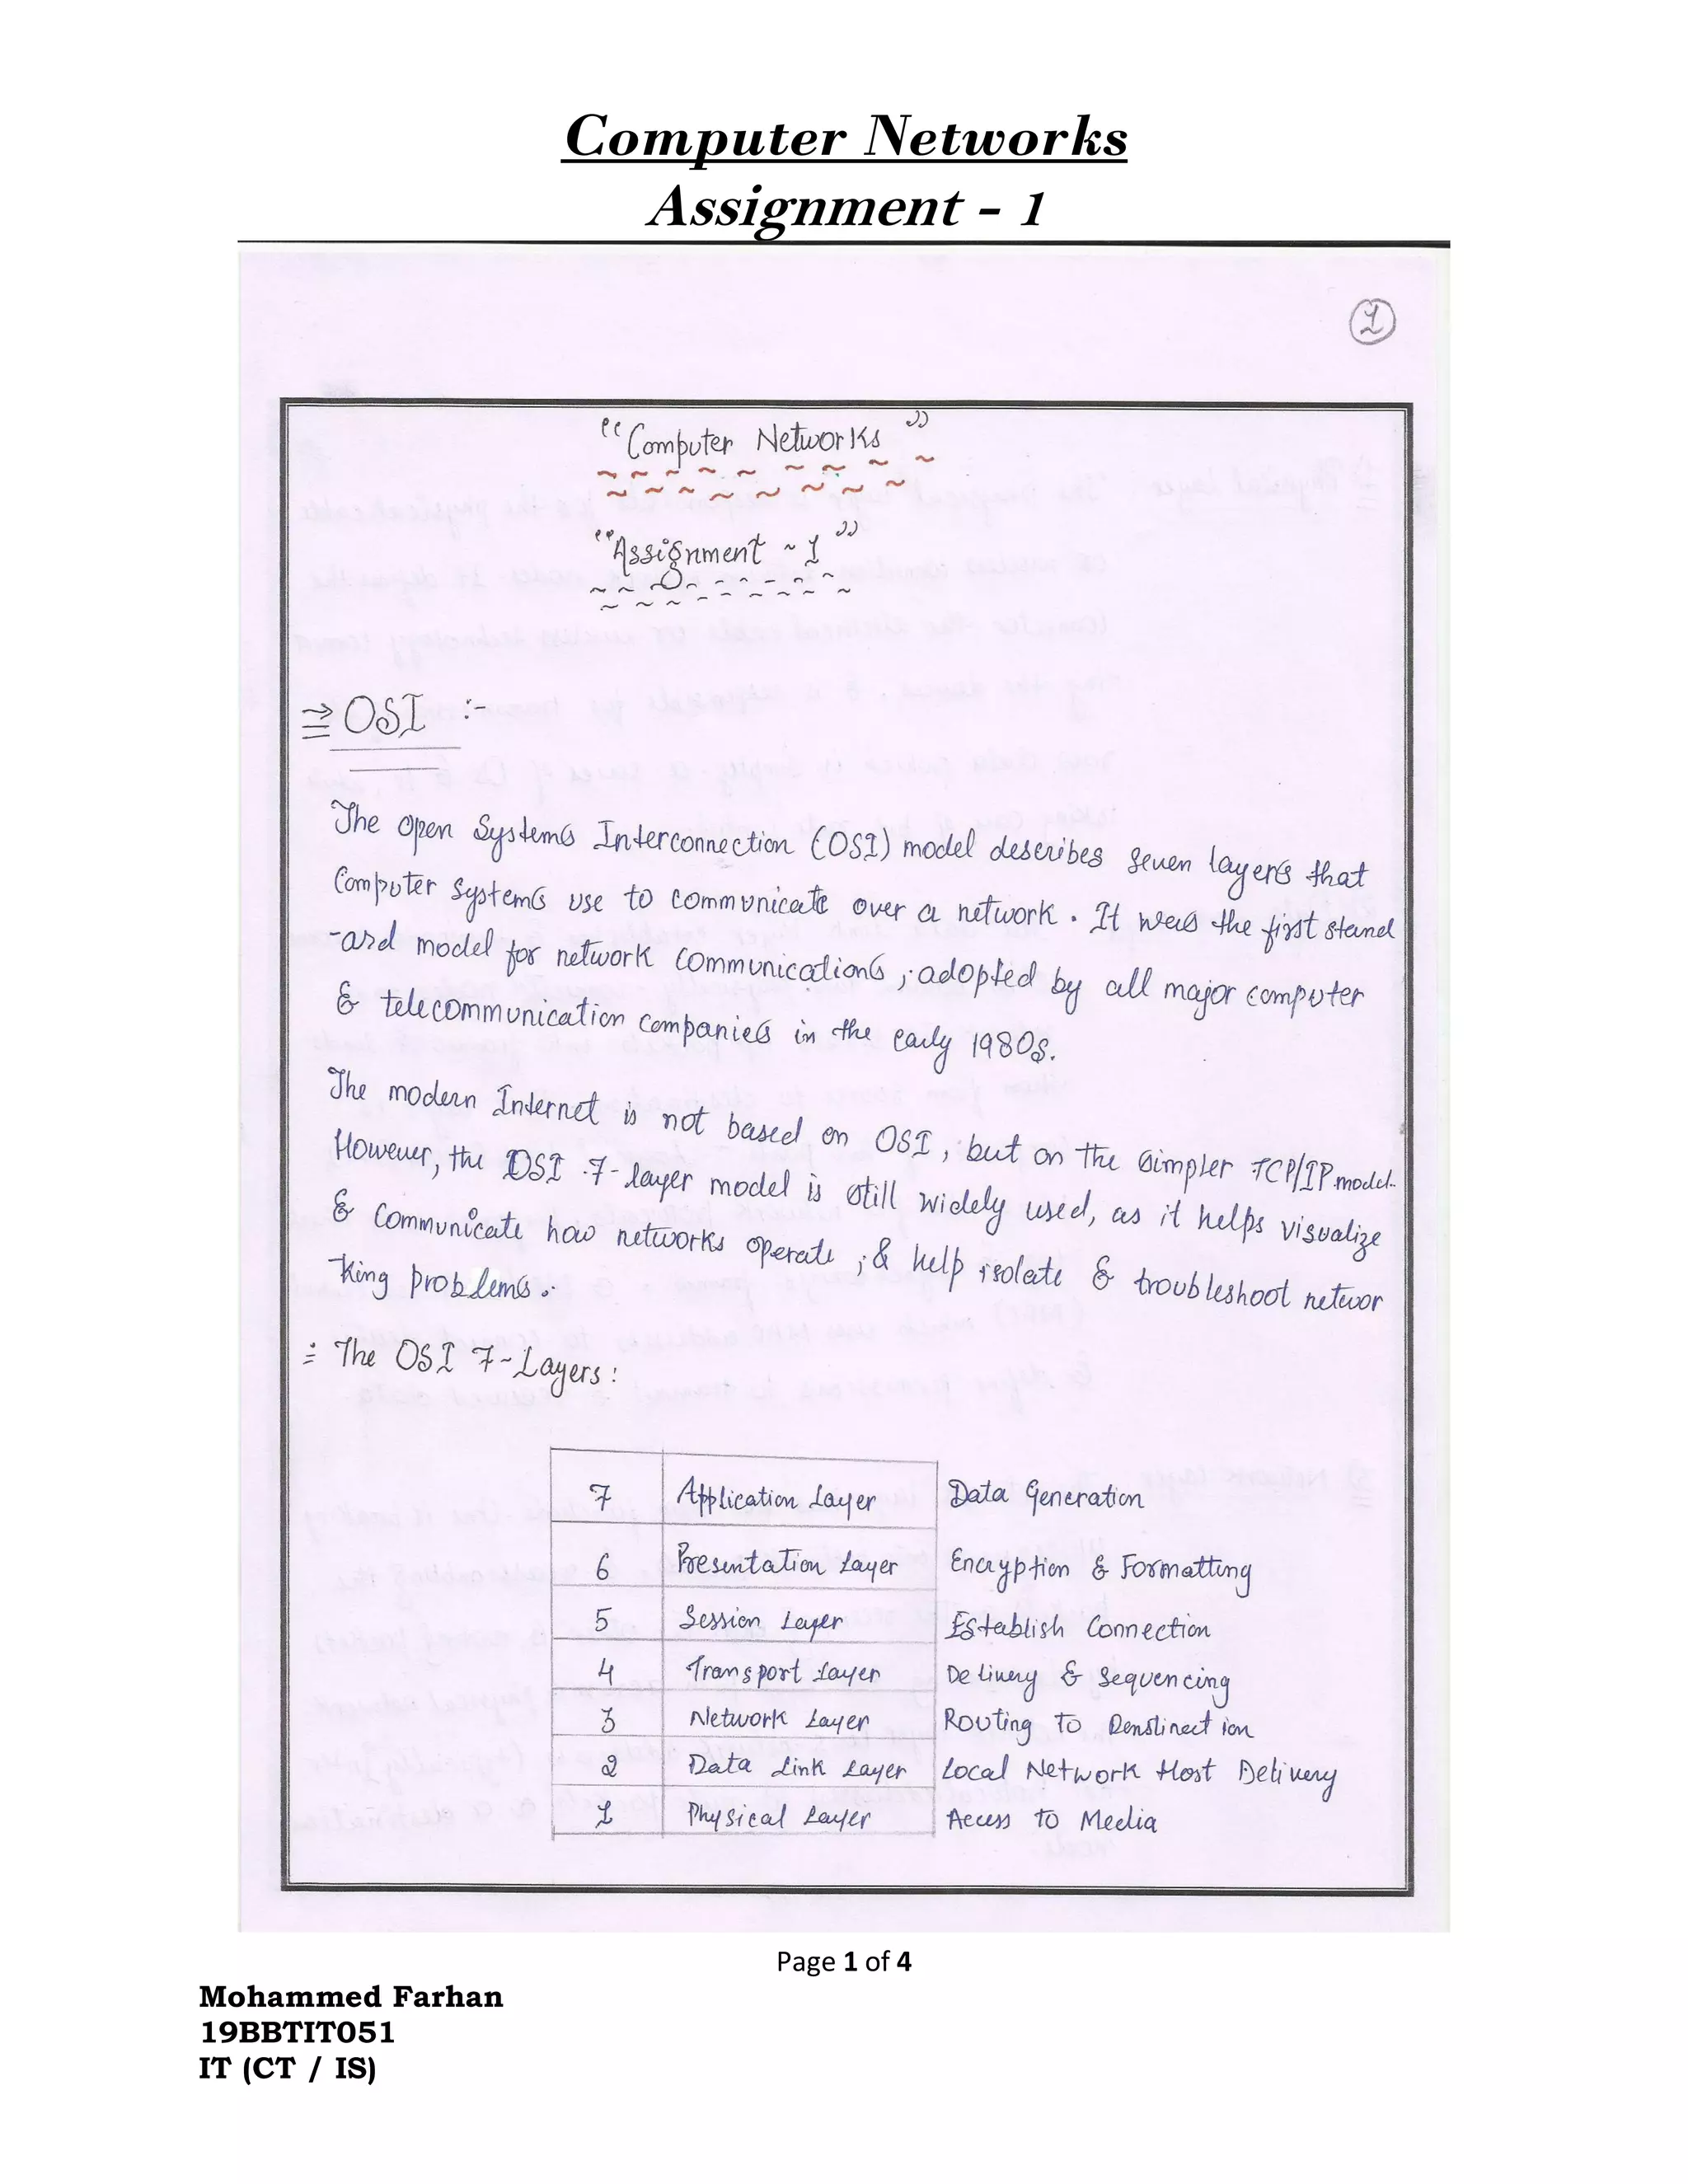 Computer Networks
Assignment - 1
1
"Computer Networks"
"Assignment ~ 1"
⇒ OSI :-
The open Systems Interconnection (OSI) model describes seven layers that
Computer systems use to communicate over a network. It was the first stand
-ard model for network communications, adopted by all major computer
& telecommunication companies in the early 1980s.
The modern Internet is not based on OSI, but on the simpler TCP/IP model.
However, the OSI 7-layer model is still widely used, as it helps visualize
& communicate how networks operate, & help isolate & troubleshoot networ
-king problems.
The OSI 7-Layers:
7 Application Layer Data Generation
6 Presentation Layer Encryption & Formatting
5 Session Layer Establish Connection
4 Transport Layer Delivery & Sequencing
3 Network Layer Routing to Denstinection
2 Data Link Layer Local Network Host Delivery
1 Physical Layer Access to Media
Page 1 of 4
Mohammed Farhan
19BBTIT051
IT (CT / IS)